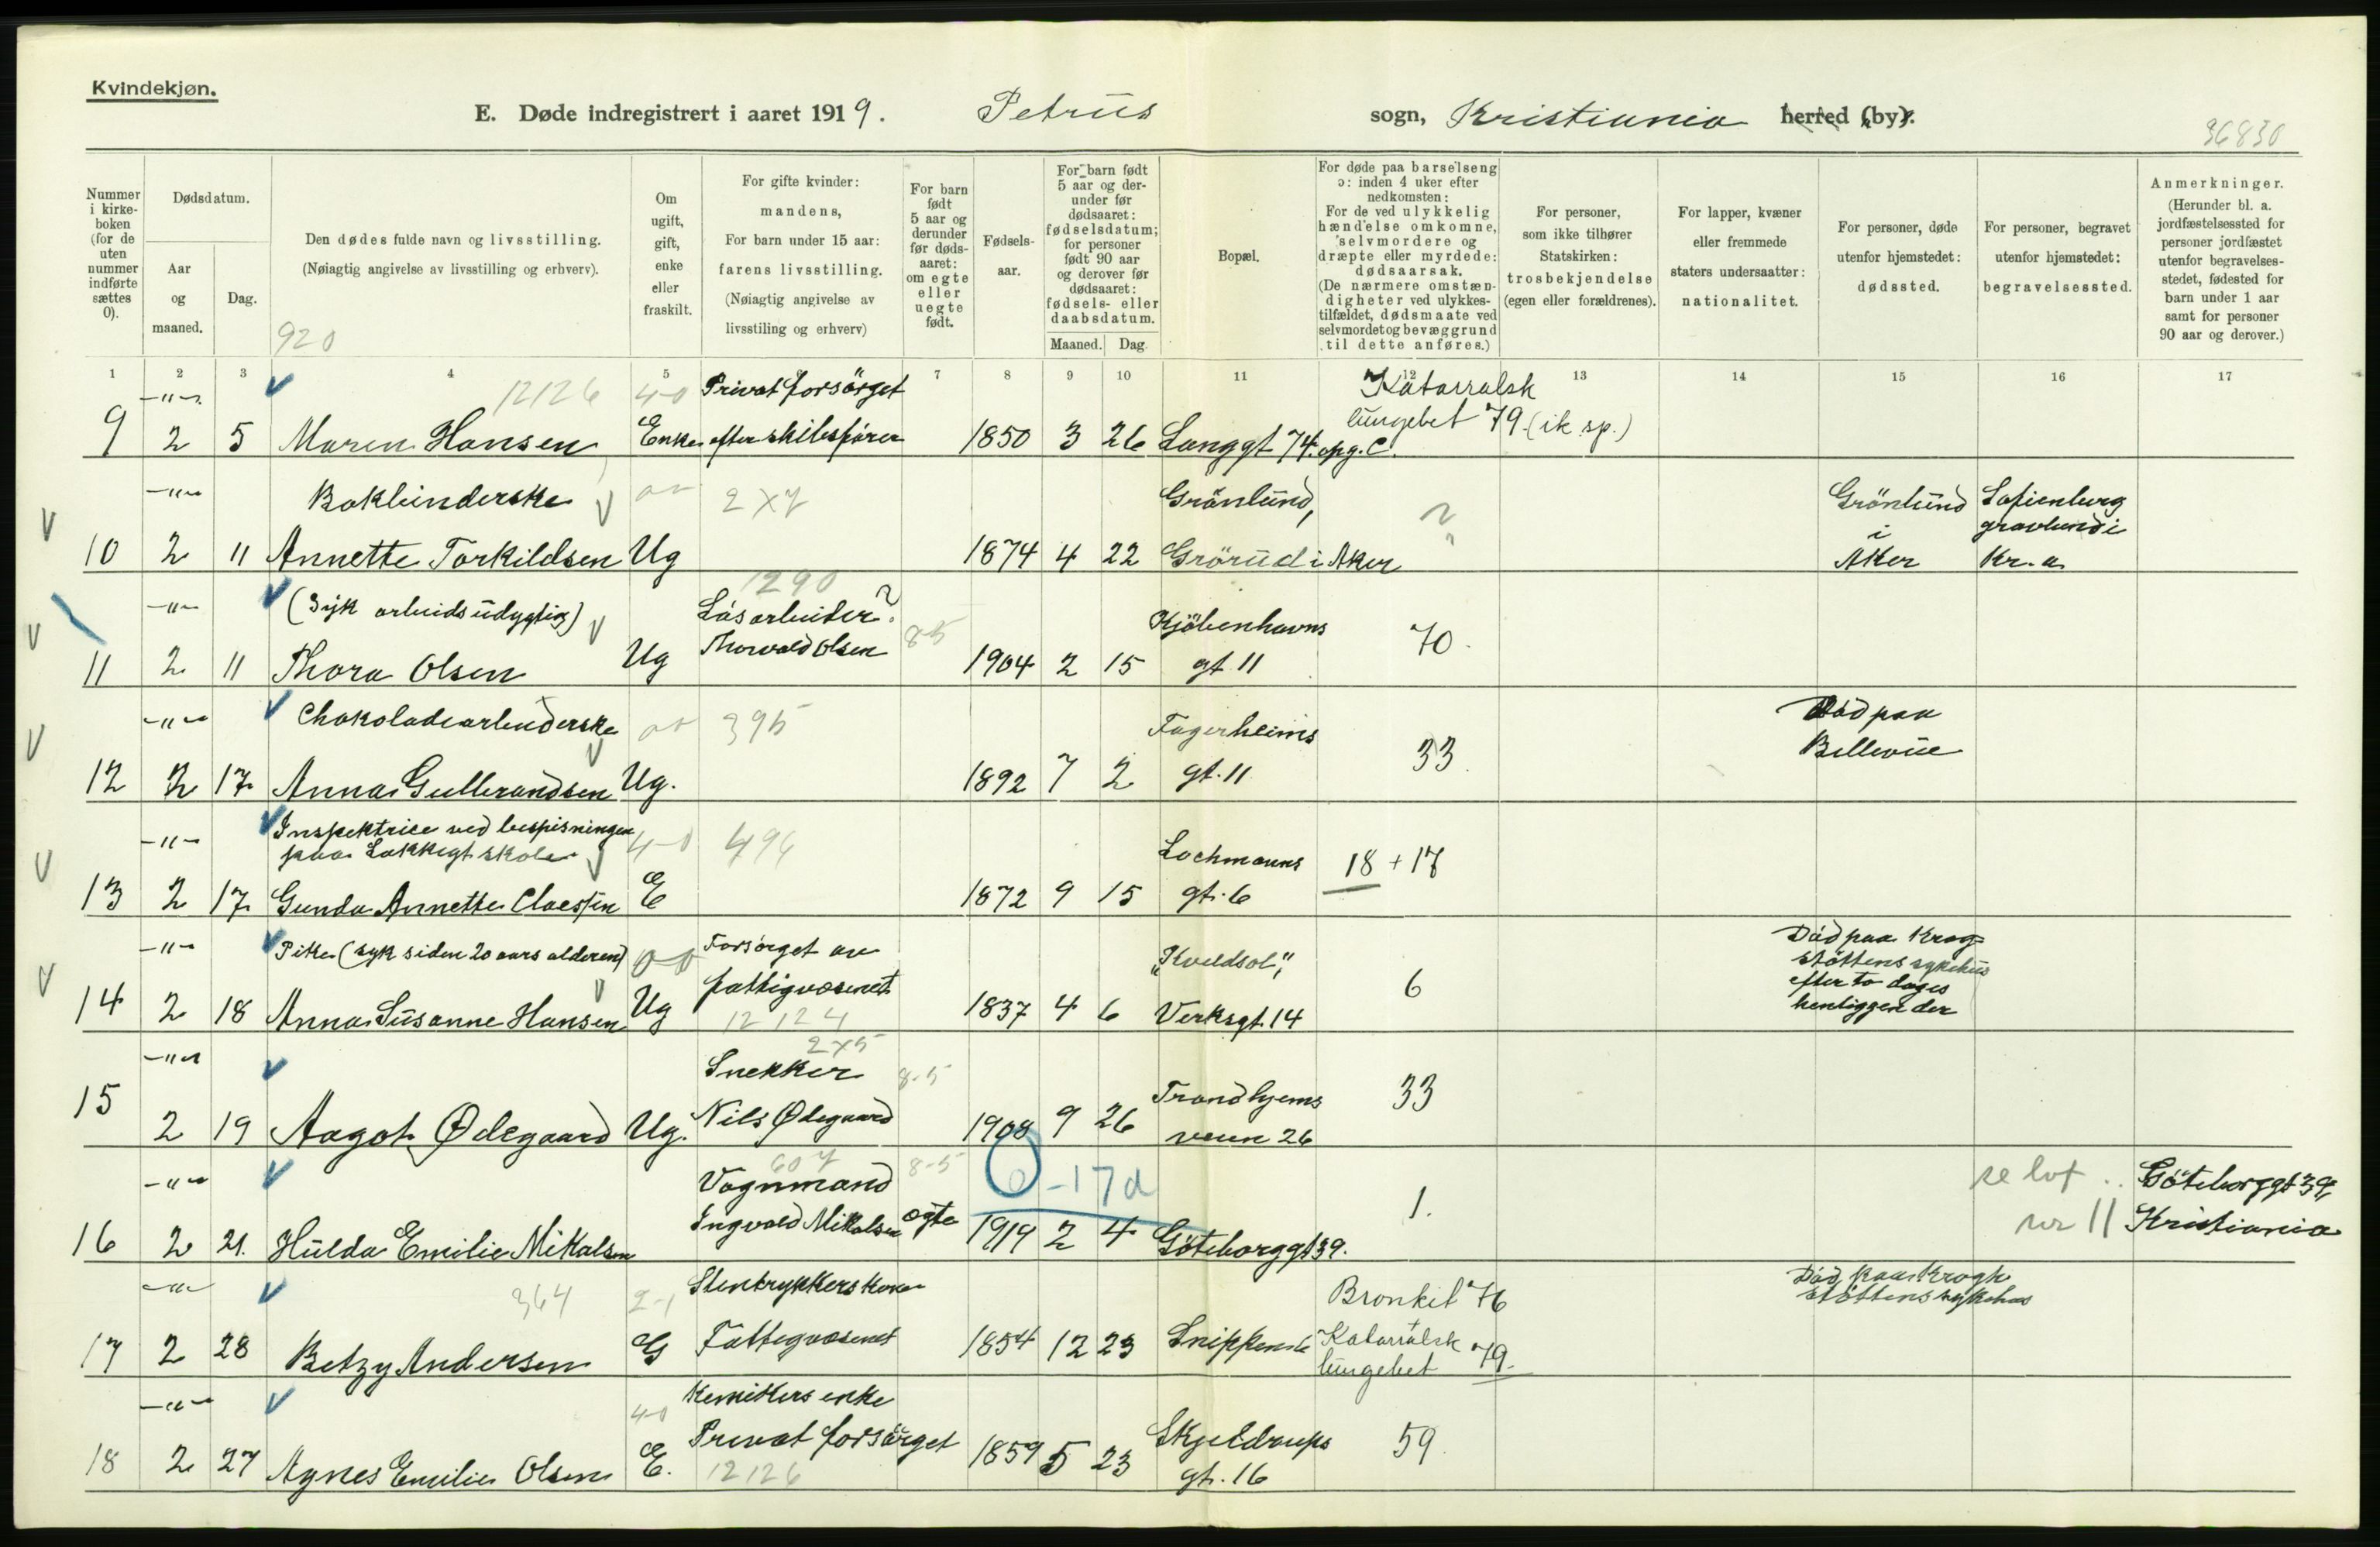 Kvindekjøn.
E. Døde indregistrert i aaret 1919. Petrus sogn, Kristiania herred (by).
36830
Nummer i kirke- boken (for de uten nummer indførte sættes 0).
Dødsdatum.
Aar og maaned.
Dag.
Den dødes fulde navn og livsstilling.
(Nøiagtig angivelse av livsstilling og erhverv).
920
Om ugift, gift, enke eller fraskilt.
For gifte kvinder:
mandens,
For barn under 15 aar:
farens livsstilling.
(Nøiagtig angivelse av
livsstiling og erhverv)
For barn født 5 aar og derunder før døds- aaret: om egte eller uegte født.
Fødsels- aar.
For barn født 5 aar og der- under før dødsaaret: fødselsdatum; for personer født 90 aar og derover før dødsaaret: fødsels- eller daabsdatum.
Maaned. Dag.
Bopæl.
For døde paa barselseng ɔ: inden 4 uker efter nedkomsten:
For de ved ulykkelig hændelse omkomne, selvmordere og dræpte eller myrdede: dødsaarsak.
(De nærmere omstæn- digheter ved ulykkes- tilfældet, dødsmaate ved selvmordet og bevæggrund til dette anføres.)
For personer, som ikke tilhører Statskirken: trosbekjendelse (egen eller forældrenes).
For lapper, kvæner eller fremmede staters undersaatter: nationalitet.
For personer, døde utenfor hjemstedet: dødssted.
For personer, begravet utenfor hjemstedet: begravelsessted.
Anmerkninger.
(Herunder bl. a. jordfæstelsessted for personer jordfæstet utenfor begravelses- stedet, fødested for barn under 1 aar samt for personer 90 aar og derover.)
1 2 3 4 5 7 8 9 10 11 12 13 14 15 16 17
-"- 12126 4-0 Privat forsörget Katarralsk
lungebet 79. (ik. sp.)
9 2 5 Maren Hansen Enke efter skibsfører 1850 3 26 Langgt 74. opg. C.
-"- Bokbinderske 2x7 Grönlund, ? Grönlund Sofienberg
i gravlund i
10 2 11 Annette Torkildsen Ug 1874 4 22 Grörud i Aker Aker Kr.a
1290
-"- (Syk arbeidsudygtig) Løsarbeider? 8-5 Kjöbenhavns 70.
11 2 11 Thora Olsen Ug Thorvald Olsen 1904 2 15 gt. 11
-"- Chokoladearbeiderske 395 Fagerheims 33. Död paa
Bellevue
12 2 17 Anna Gulbrandsen Ug. 1892 7 2 gt. 11
-"- Inspektrice ved bespisningen 4-0 494
paa Lakkegt skole Lochmanns 18 + 17
13 2 17 Gunda Annette Claessen E 1872 9 15 gt. 6
-"- Pike (syk siden 20 aars alderen) Forsörget av "Kveldsol", 6 Död paa Krog-
støttens sykehus
efter to dages
henliggen der
fattigvæsenet
14 2 18 Anna Susanne Hansen Ug 12124 1837 4 6 Verksgt. 14
-"- 2x5
Snekker 8-5 Trondhjems 33
15 2 19 Aagot Ødegaard Ug. Nils Ødegaard 1908 9 26 veien 26
-"- 607 8-5 0-17d
Vognmand 1. se lot .. Göteborggt 39,
16 2 21. Hulda Emilie Mikalsen Ingvald Mikalsen ægte 1919 2 4 Göteborggt 39. nr 11 Kristiania
-"- 364 2-1 Stentrykkers kone Bronkit 76 Död paa Krogh
støttens sykehus
+
17 2 28 Betzy Andersen G Fattigvæsenet 1854 12 23 Snippen 6 Katarralsk
lungebet 79.
-"- 4-0 Kemikers enke
Privat forsörget Skjeldrups 59.
18 2 27 Agnes Emilie Olsen E. 12126 1859 5 23 gt. 16